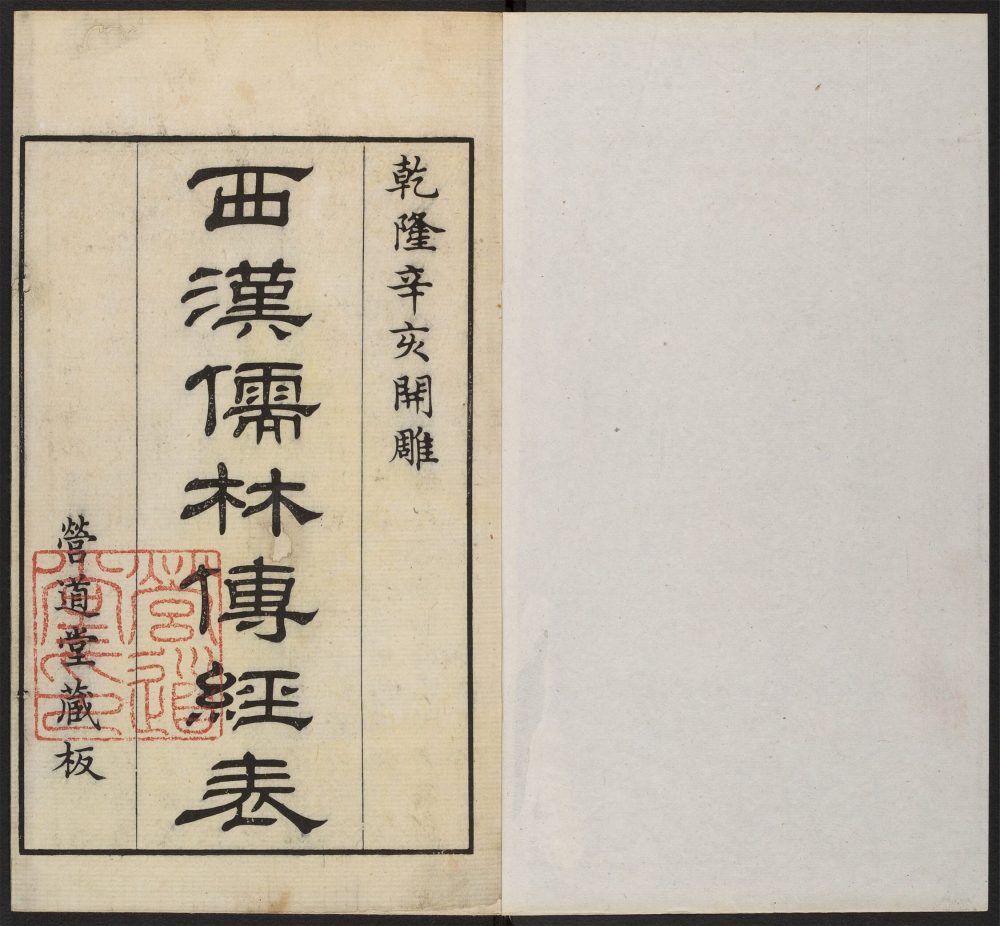 乾隆辛亥開雕
西漢儒林傳經表
營道堂藏板
營道堂印